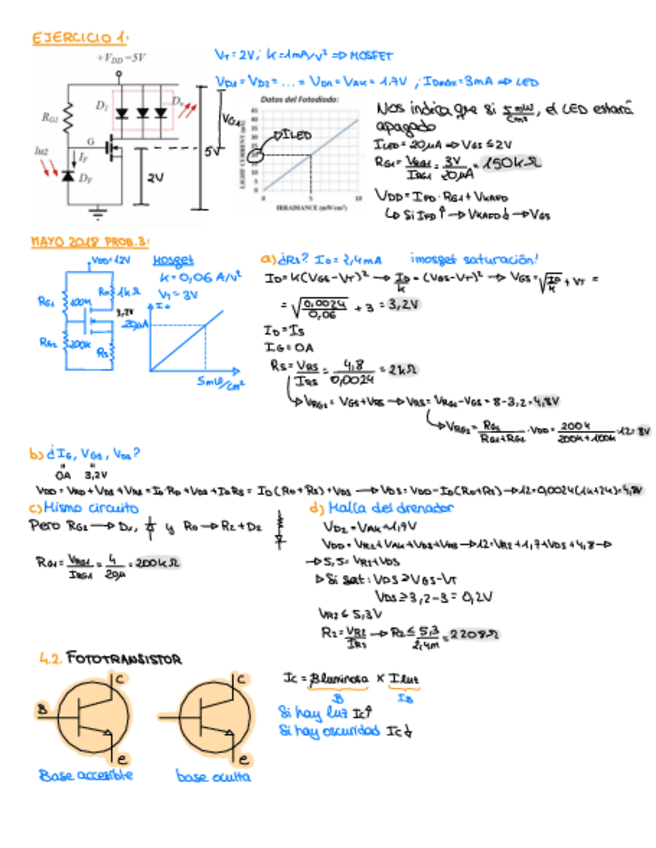 EJERCICIO 1:
+V_DD = 5V
R_G1
D_1
D_n
luz
G
I_F
D_F
2V
5V
V_G1
V_T = 2V; K = 1mA/V² ⇒ MOSFET
V_D1 = V_D2 = ... = V_Dn = V_AK = 1.7V ; I_Dmax = 3mA ⇒ LED
Datos del Fotodiodo:
I LED
LIGHT CURRENT (µA)
45
40
35
30
25
20
15
10
5
0
0 5 10
IRRADIANCE (mW/cm²)
Nos indica que si 5mW/cm², el LED estará
apagado
I_LED = 20µA ⇒ V_GS ≤ 2V
R_G1 = V_RG1/I_RG1 = 3V/20µA = 150kΩ
V_DD = I_FD · R_G1 + V_KAFD
↳ Si I_FD ↑ → V_KAFD ↓ → V_GS
MAYO 2018 PROB.3:
V_DD = 12V
R_G1
100k
R_D
1kΩ
3,2V
R_G2
200k
R_S
Mosfet
K = 0,06 A/V²
V_T = 3V
20µA
5mW/cm²
a) ¿R_S? I_D = 2,4mA ¡mosfet saturación!
I_D = K(V_GS - V_T)² → I_D/K = (V_GS - V_T)² → V_GS = √(I_D/K) + V_T =
= √(0,0024/0,06) + 3 = 3,2V
I_D = I_S
I_G = 0A
R_S = V_RS/I_RS = 4,8/0,0024 = 2kΩ
↳ V_RG2 = V_GS + V_RS → V_RS = V_RG2 - V_GS = 8 - 3,2 = 4,8V
↳ V_RG2 = R_G2/(R_G1+R_G2) · V_DD = 200k/(200k+100k) · 12 = 8V
b) ¿I_G, V_GS, V_DS?
0A 3,2V
V_DD = V_RD + V_DS + V_RS = I_D·R_D + V_DS + I_D R_S = I_D(R_D + R_S) + V_DS → V_DS = V_DD - I_D(R_D+R_S) → 12 - 0,0024(1k+2k) = 4,8V
c) Mismo circuito
Pero R_G2 → D_1, y R_D → R_2 + D_2
R_G1 = V_RG1/I_RG1 = 4/20µ = 200kΩ
d) Malla del drenador
V_D2 = V_AK = 1,7V
V_DD = V_R2 + V_AK + V_DS + V_RS → 12 = V_R2 + 1,7 + V_DS + 4,8 →
→ 5,5 = V_R2 + V_DS
▷ Si sat: V_DS ≥ V_GS - V_T
V_DS ≥ 3,2 - 3 = 0,2V
V_R2 ≤ 5,3V
R_2 = V_R2/I_R2 → R_2 ≤ 5,3/2,4m = 2208Ω
4.2. FOTOTRANSISTOR
B
C
e
C
e
Base accesible
base oculta
I_C = β luminosa × I luz
B I_B
Si hay luz I_C ↑
Si hay oscuridad I_C ↓